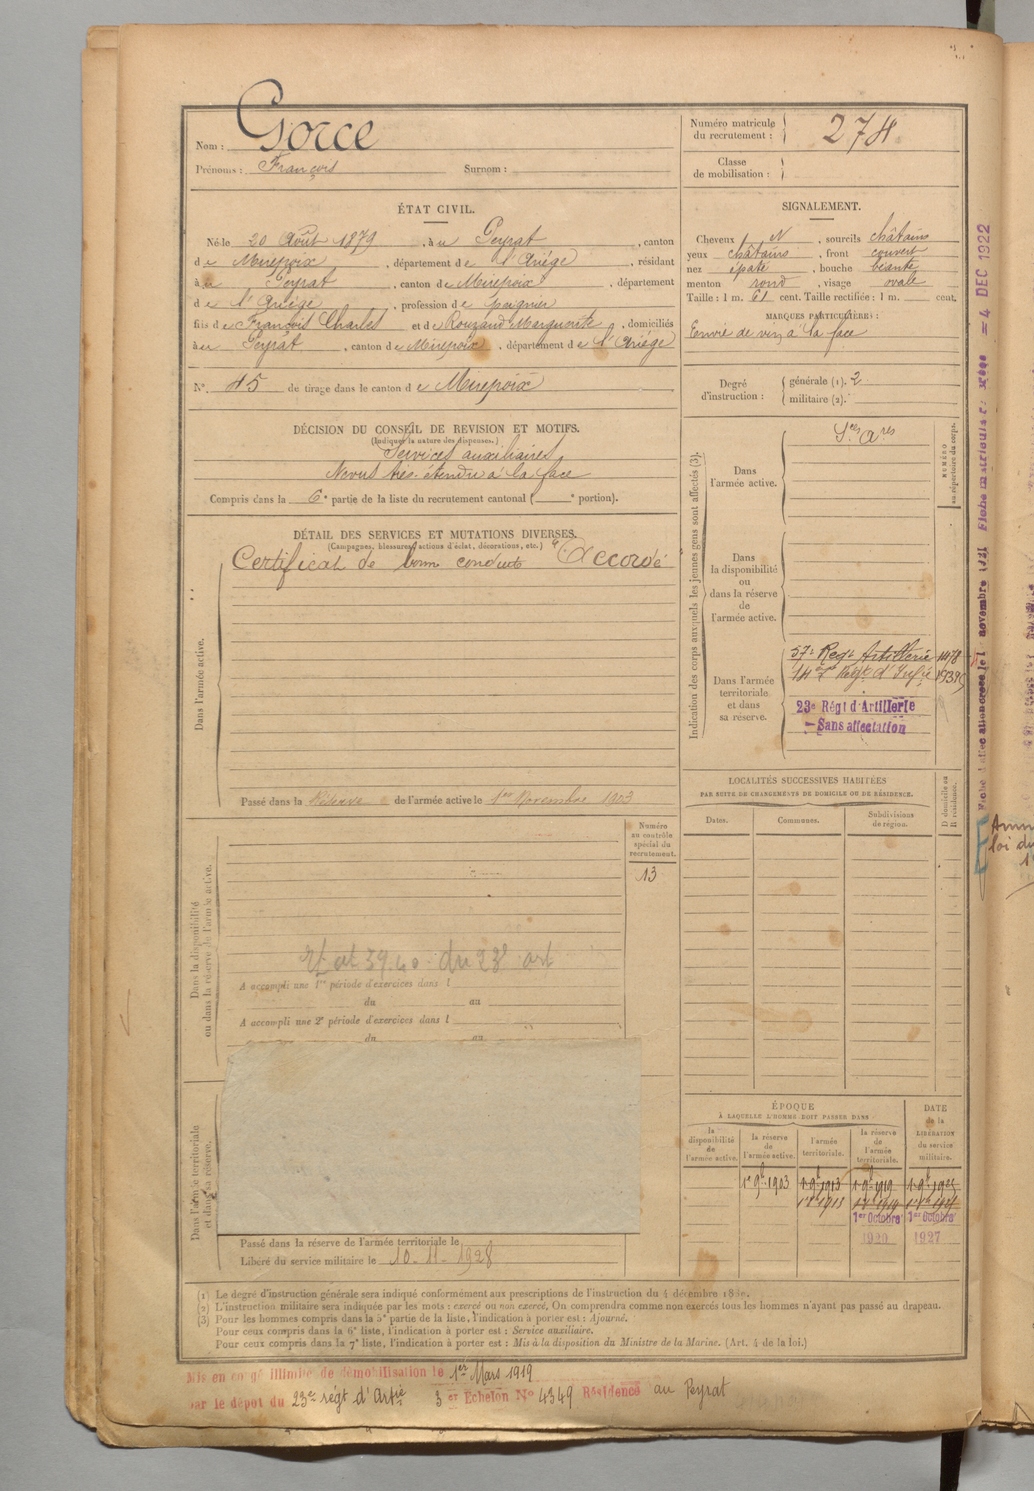 Nom : Gorce
Prénoms : François Surnom :
Numéro matricule du recrutement : 274
Classe de mobilisation :
ÉTAT CIVIL.
Né le 20 Août 1879, à u Peyrat, canton
d e Mirepoix, département d e l'Ariége, résidant
à u Peyrat, canton d e Mirepoix, département
d e l'Ariége, profession de peignier
fils d e François Charles et d e Rouzaud Marguerite, domiciliés
à u Peyrat, canton d e Mirepoix, département d e l'Ariége
N° 45 de tirage dans le canton d e Mirepoix
SIGNALEMENT.
Cheveux N, sourcils châtains
yeux châtains, front couvert
nez épaté, bouche béante
menton rond, visage ovale
Taille : 1 m. 61 cent. Taille rectifiée : 1 m. cent.
MARQUES PARTICULIÈRES :
Envie de vin à la face
Degré d'instruction : générale (1). 2
militaire (2).
DÉCISION DU CONSEIL DE REVISION ET MOTIFS.
(Indiquer la nature des dispenses.)
Services auxiliaires
Nævus très étendu à la face
Compris dans la 6e partie de la liste du recrutement cantonal ( e portion).
DÉTAIL DES SERVICES ET MUTATIONS DIVERSES.
(Campagnes, blessures, actions d'éclat, décorations, etc.) (4)
Certificat de bonne conduite Accordé
Dans l'armée active.
Passé dans la Réserve de l'armée active le 1er Novembre 1903
Indication des corps auxquels les jeunes gens sont affectés (3).
NUMÉRO au répertoire du corps.
Dans l'armée active.
Ses Ares
Dans la disponibilité ou dans la réserve de l'armée active.
Dans l'armée territoriale et dans sa réserve.
57e Regt Artillerie 1478
Régt d'Infie
23e Régt d'Artillerie
Sans affectation
Dans la disponibilité ou dans la réserve de l'armée active.
Numéro au contrôle spécial du recrutement.
13
du 23e art
A accompli une 1re période d'exercices dans l
du au
A accompli une 2e période d'exercices dans l
du au
LOCALITÉS SUCCESSIVES HABITÉES
PAR SUITE DE CHANGEMENTS DE DOMICILE OU DE RÉSIDENCE.
Dates. Communes. Subdivisions de région. D domicile ou R résidence.
Dans l'armée territoriale et dans sa réserve.
Passé dans la réserve de l'armée territoriale le
Libéré du service militaire le 10-11-1928
ÉPOQUE
À LAQUELLE L'HOMME DOIT PASSER DANS
la disponibilité de l'armée active. la réserve de l'armée active. l'armée territoriale. la réserve de l'armée territoriale.
DATE de la LIBÉRATION du service militaire.
1er 9bre 1903 1er 9bre 1913 1er 9bre 1919
1er Octobre 1er Octobre
1920 1927
(1) Le degré d'instruction générale sera indiqué conformément aux prescriptions de l'instruction du 4 décembre
(2) L'instruction militaire sera indiquée par les mots : exercé ou non exercé. On comprendra comme non exercés tous les hommes n'ayant pas passé au drapeau.
(3) Pour les hommes compris dans la 5e partie de la liste, l'indication à porter est : Ajourné.
Pour ceux compris dans la 6e liste, l'indication à porter est : Service auxiliaire.
Pour ceux compris dans la 7e liste, l'indication à porter est : Mis à la disposition du Ministre de la Marine. (Art. 4 de la loi.)
Mis en congé illimité de démobilisation le 1er Mars 1919
par le dépôt du 23e régt d'Artie 3 er Echelon No 4349 Résidence au Peyrat
= 4 DEC 1922